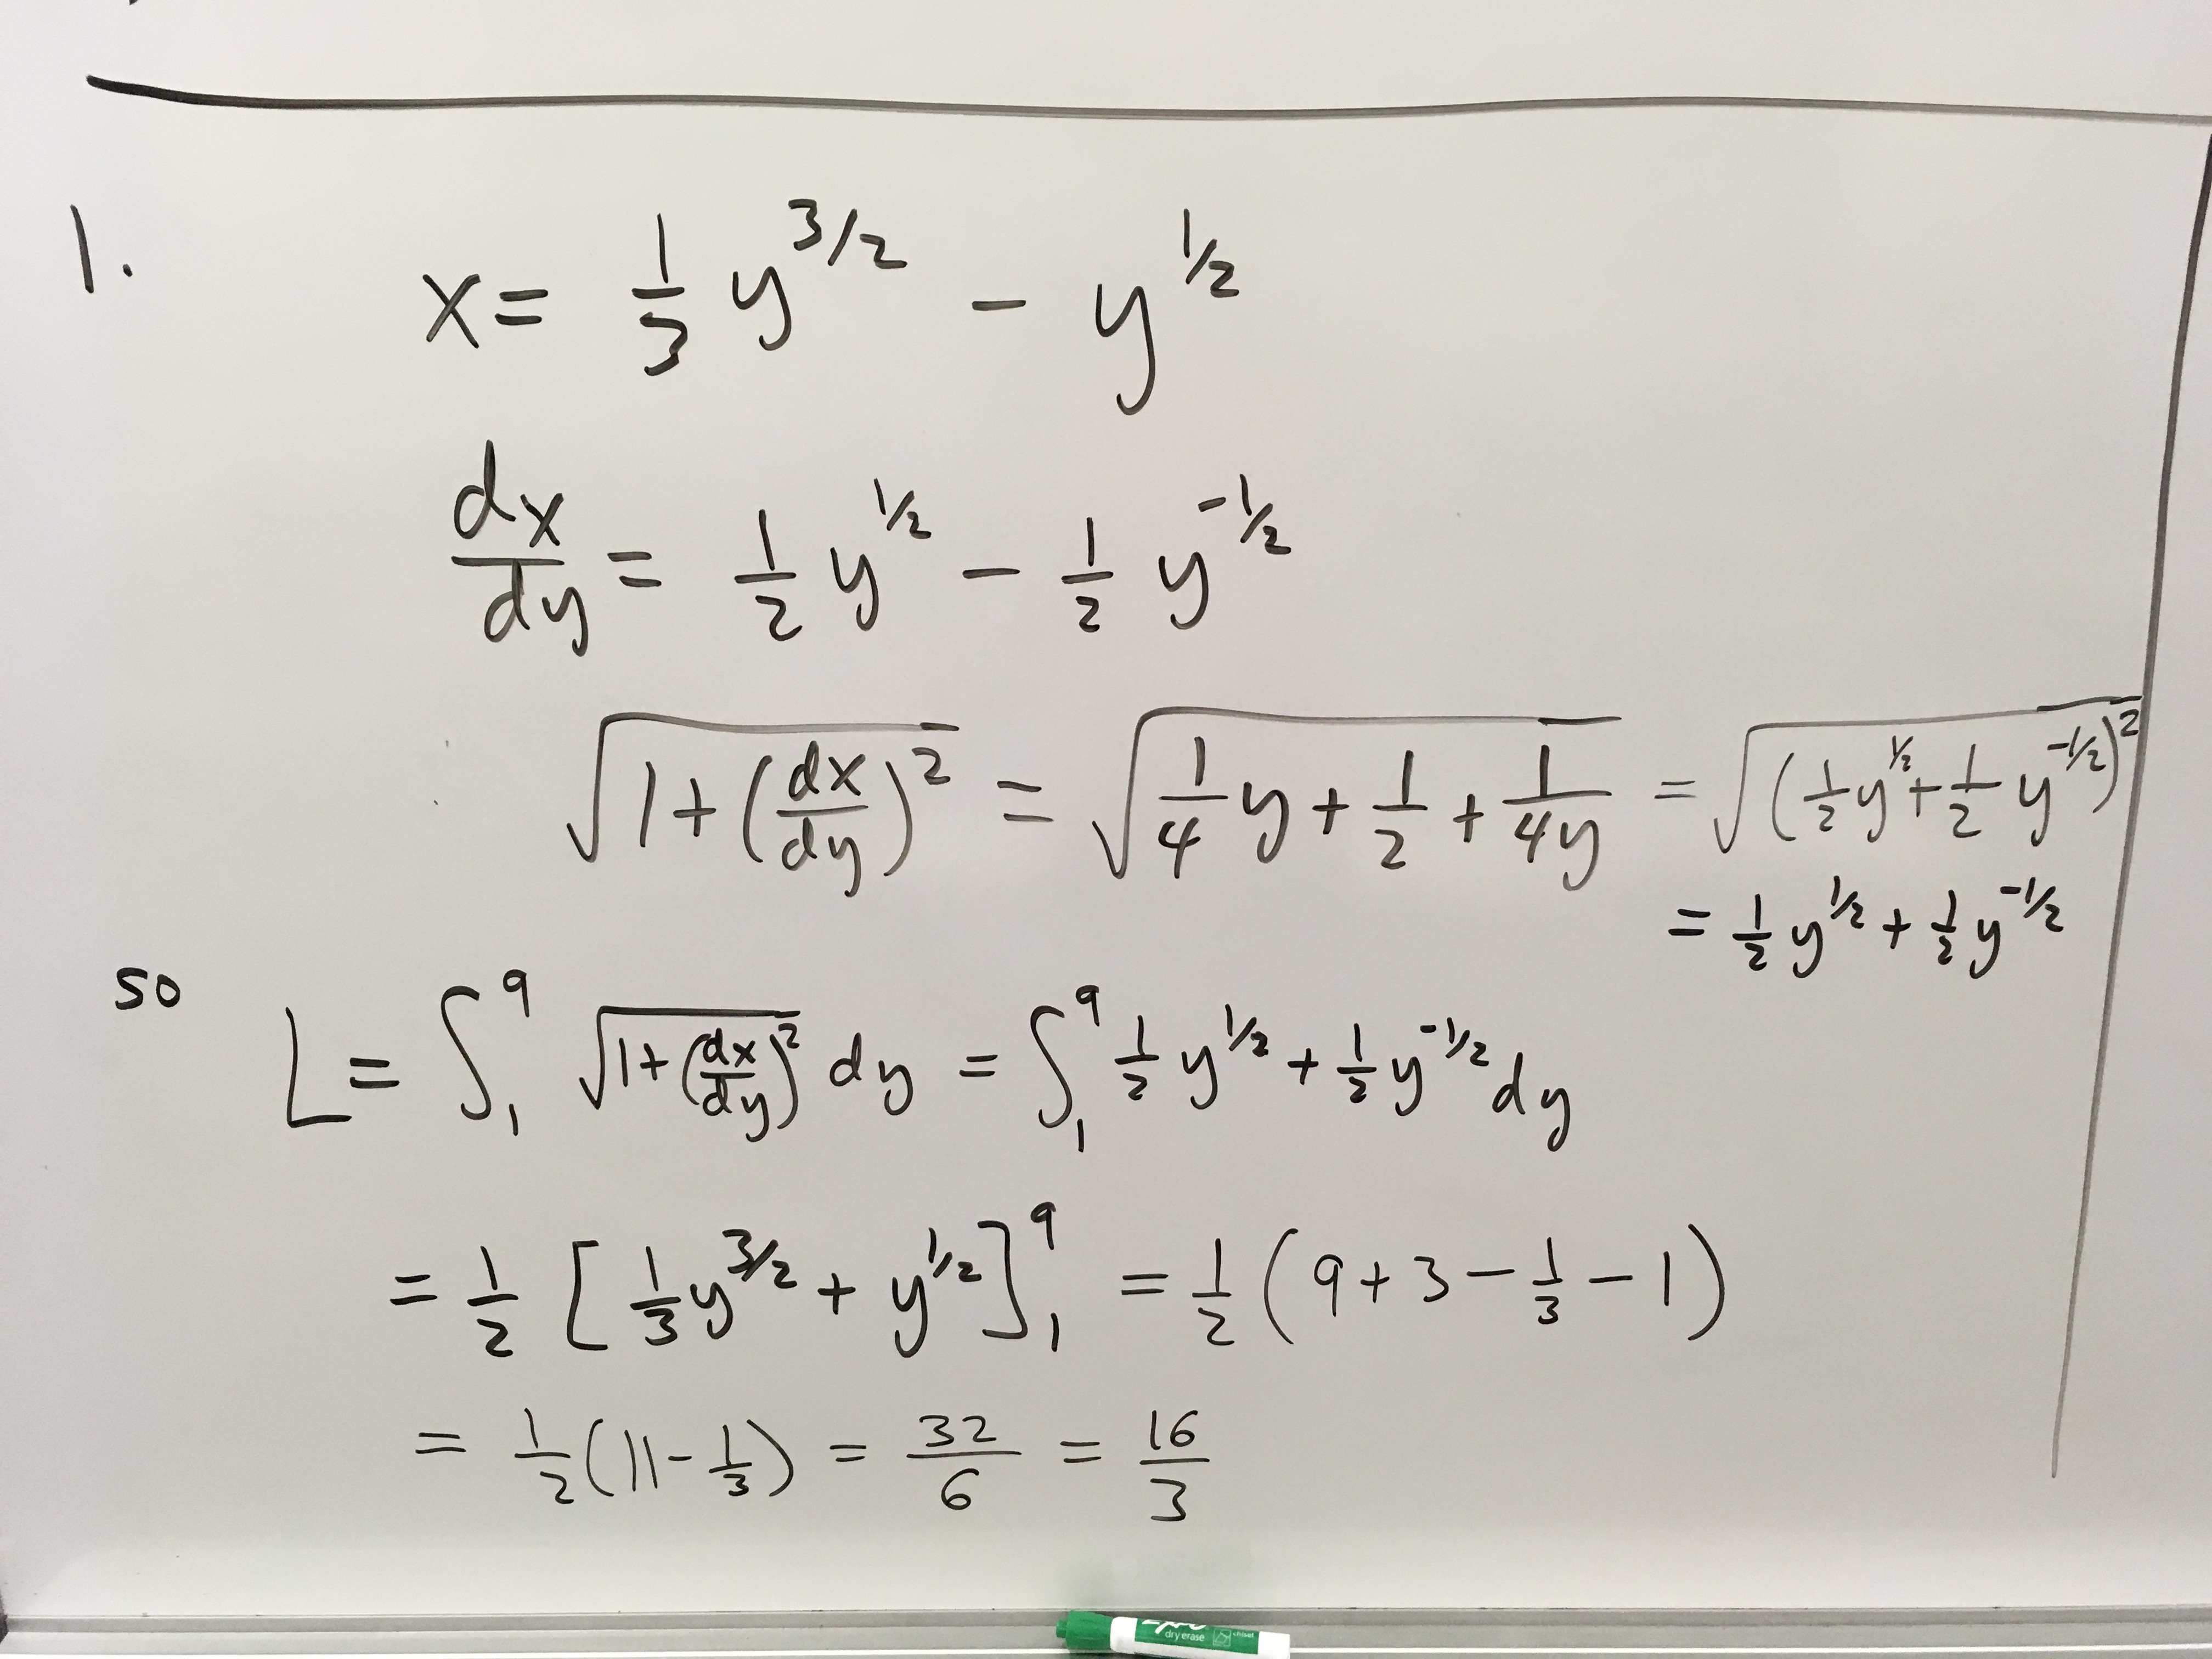 1. x = 1/3 y^(3/2) - y^(1/2)
dx/dy = 1/2 y^(1/2) - 1/2 y^(-1/2)
√(1 + (dx/dy)^2) = √(1/4 y + 1/2 + 1/(4y)) = √((1/2 y^(1/2) + 1/2 y^(-1/2))^2)
= 1/2 y^(1/2) + 1/2 y^(-1/2)
so L = ∫_1^9 √(1 + (dx/dy)^2) dy = ∫_1^9 1/2 y^(1/2) + 1/2 y^(-1/2) dy
= 1/2 [1/3 y^(3/2) + y^(1/2)]_1^9 = 1/2 (9 + 3 - 1/3 - 1)
= 1/2 (11 - 1/3) = 32/6 = 16/3
dry erase